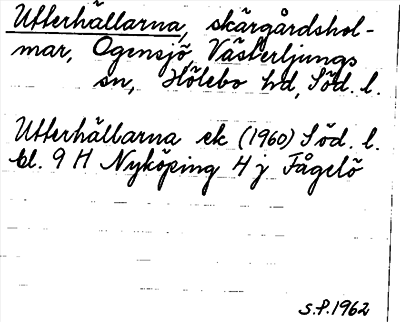 Utterhällarna, skärgårdshol-
mar, Ogensjö, Västerljungs
sn, Hölebo hd, Söd. l.
Utterhällarna ek (1960) Söd. l.
bl. 9 H Nyköping 4 j Fågelö
S.P. 1962